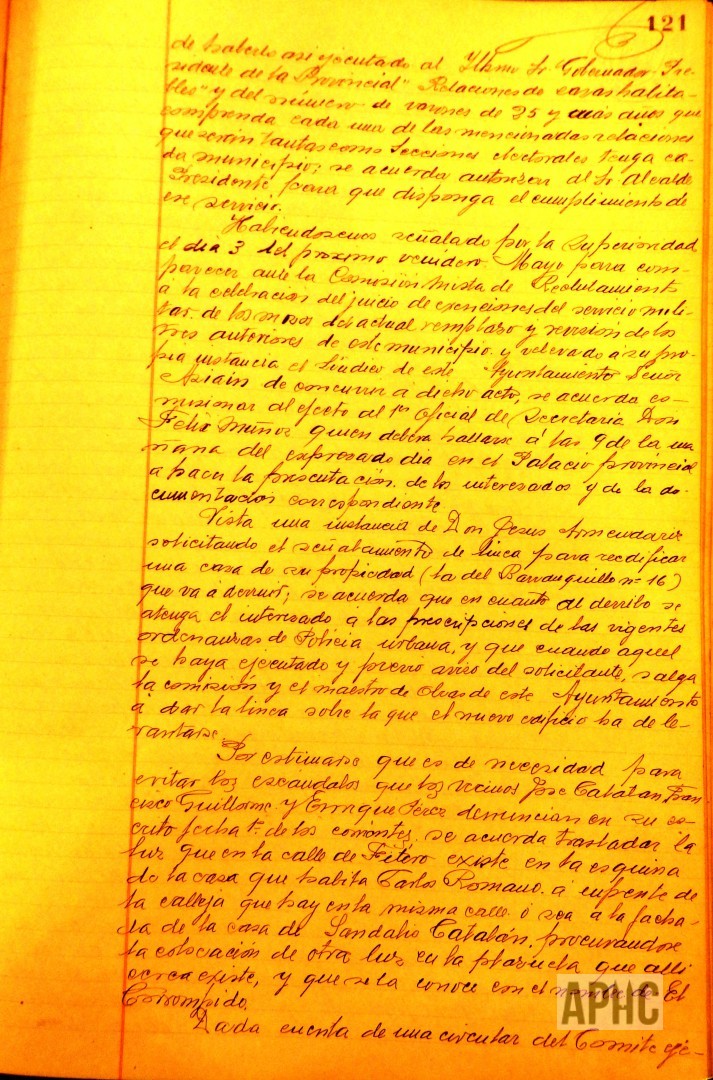 121
de haberlo asi ejecutado al Yltsmo Sr. Gobernador Pre-
sidente de la Provincial" Relaciones de casas habita-
bles" y del número de varones de 25 y más años que
comprenda cada una de las mencionadas relaciones
que serán tantas como Secciones electorales tenga ca-
da municipio; se acuerda autorizar al Sr. Alcalde
Presidente para que disponga el cumplimiento de
ese servicio.
Habiendosenos señalado por la Superioridad
el dia 3 del proximo venidero Mayo para com-
parecer ante la Comisión Mixta de Reclutamiento
á la celebración del juicio de exenciones del servicio mili-
tar de los mozos del actual remplazo y revisión de los
tres anteriores de este municipio y relevado a su pro-
pia instancia el Síndico de este Ayuntamiento Señor
Asiain de concurrir á dicho acto, se acuerda co-
misionar al efecto al 1er Oficial de Secretaria Don
Felix Muñoz quien deberá hallarse á las 9 de la ma
ñana del expresado dia en el Palacio provincial
a hacer la presentación de los interesados y de la do-
cumentación correspondiente.
Vista una instancia de Don Jesus Armendariz
solicitando el señalamiento de linea para reedificar
una casa de su propiedad (la del Barranquillo nº 16)
que va á derruir; se acuerda que en cuanto al derribo se
atenga el interesado a las prescripciones de las vigentes
ordenanzas de Policia urbana, y que cuando aquel
se haya ejecutado y previo aviso del solicitante, salga
la comisión y el maestro de Obras de este Ayuntamiento
á dar la linea sobre la que el nuevo edificio ha de le-
vantarse.
Por estimarse que es de necesidad para
evitar los escándalos que los vecinos José Catalán, Fran
cisco Guillorme y Enrique Pérez denuncian en su es-
crito fecha 1º de los corrientes, se acuerda trasladar la
luz que en la calle de Fitero existe en la esquina
de la casa que habita Carlos Romano á enfrente de
la calleja que hay en la misma calle ó sea á la facha-
da de la casa de Sandalio Catalán, procurandose
la colocación de otra luz en la plazuela que alli
cerca existe, y que se la conoce con el nombre de El
Corrompido.
Dada cuenta de una circular del Comité eje-
APHC